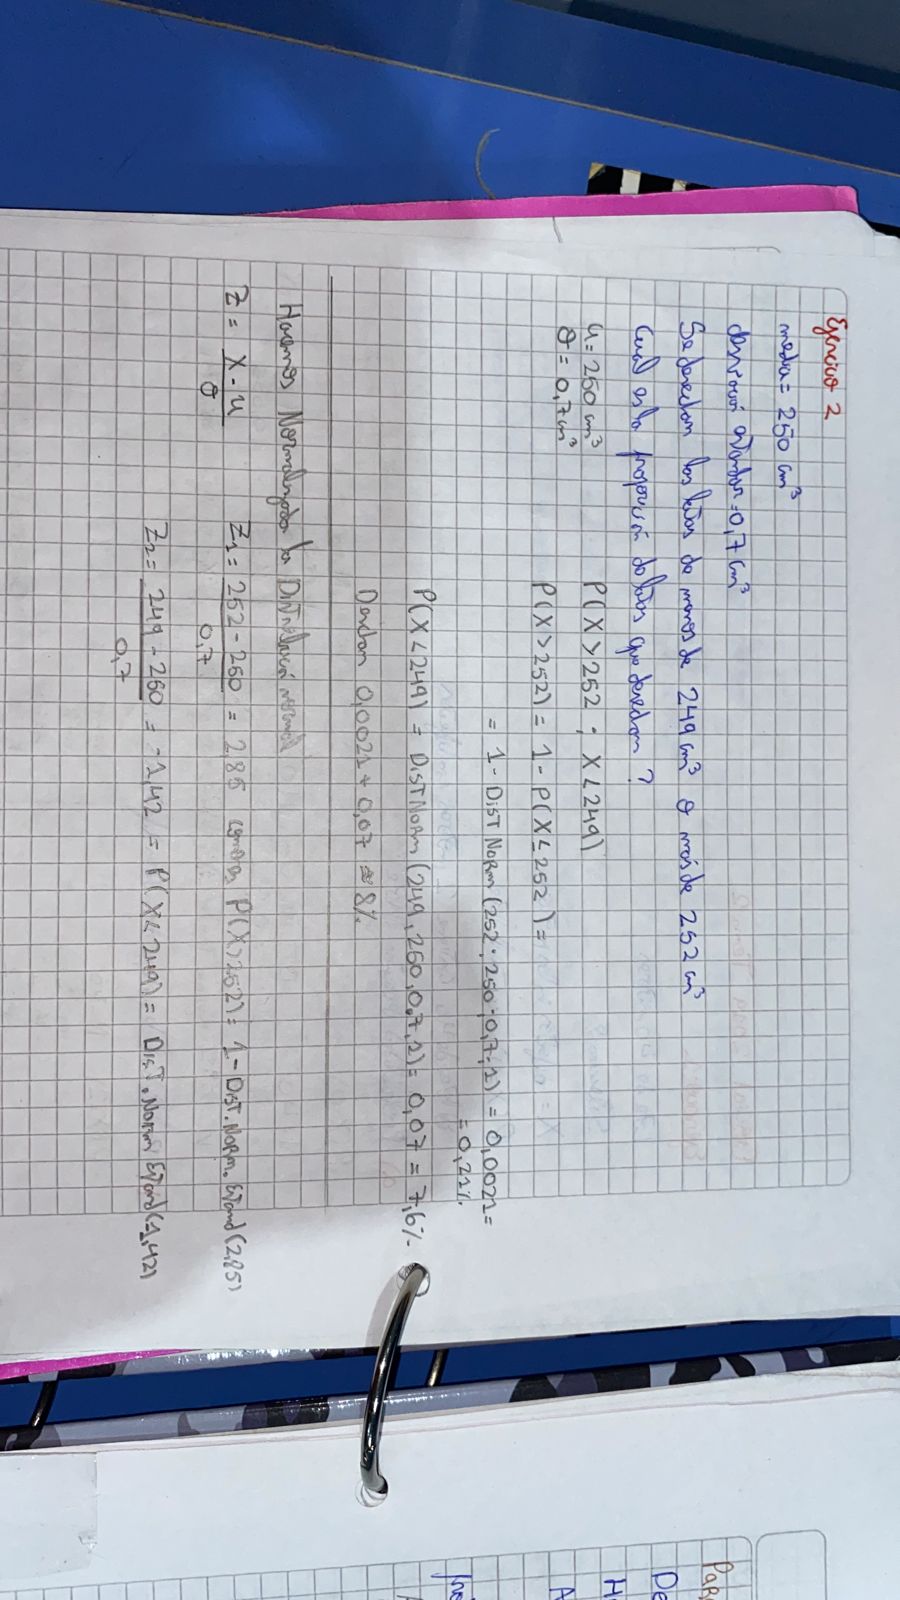 Ejercicio 2
media = 250 cm³
desviación estandar = 0,7 cm³
Se desechan las latas de menos de 249 cm³ o más de 252 cm³
Cual es la proporción de latas que desechan ?
u = 250 cm³
θ = 0,7 cm³
P(X > 252 ; X < 249)
P(X > 252) = 1 - P(X ≤ 252) =
= 1 - DIST NORM (252; 250; 0,7; 1) = 0,0021 =
= 0,21%
P(X < 249) = DIST NORM (249, 250, 0,7, 1) = 0,07 = 7,6%
0,0021 + 0,07 ≈ 8%
Hacemos la Distribución normal
Z = X - u / θ
Z1 = 252 - 250 / 0,7 = 2,85 P(X > 252) = 1 - DIST. NORM. Estand (2,85)
Z2 = 249 - 250 / 0,7 = -1,42 = P(X < 249) = DIST. NORM Estand (-1,42)
Par
De
H
A